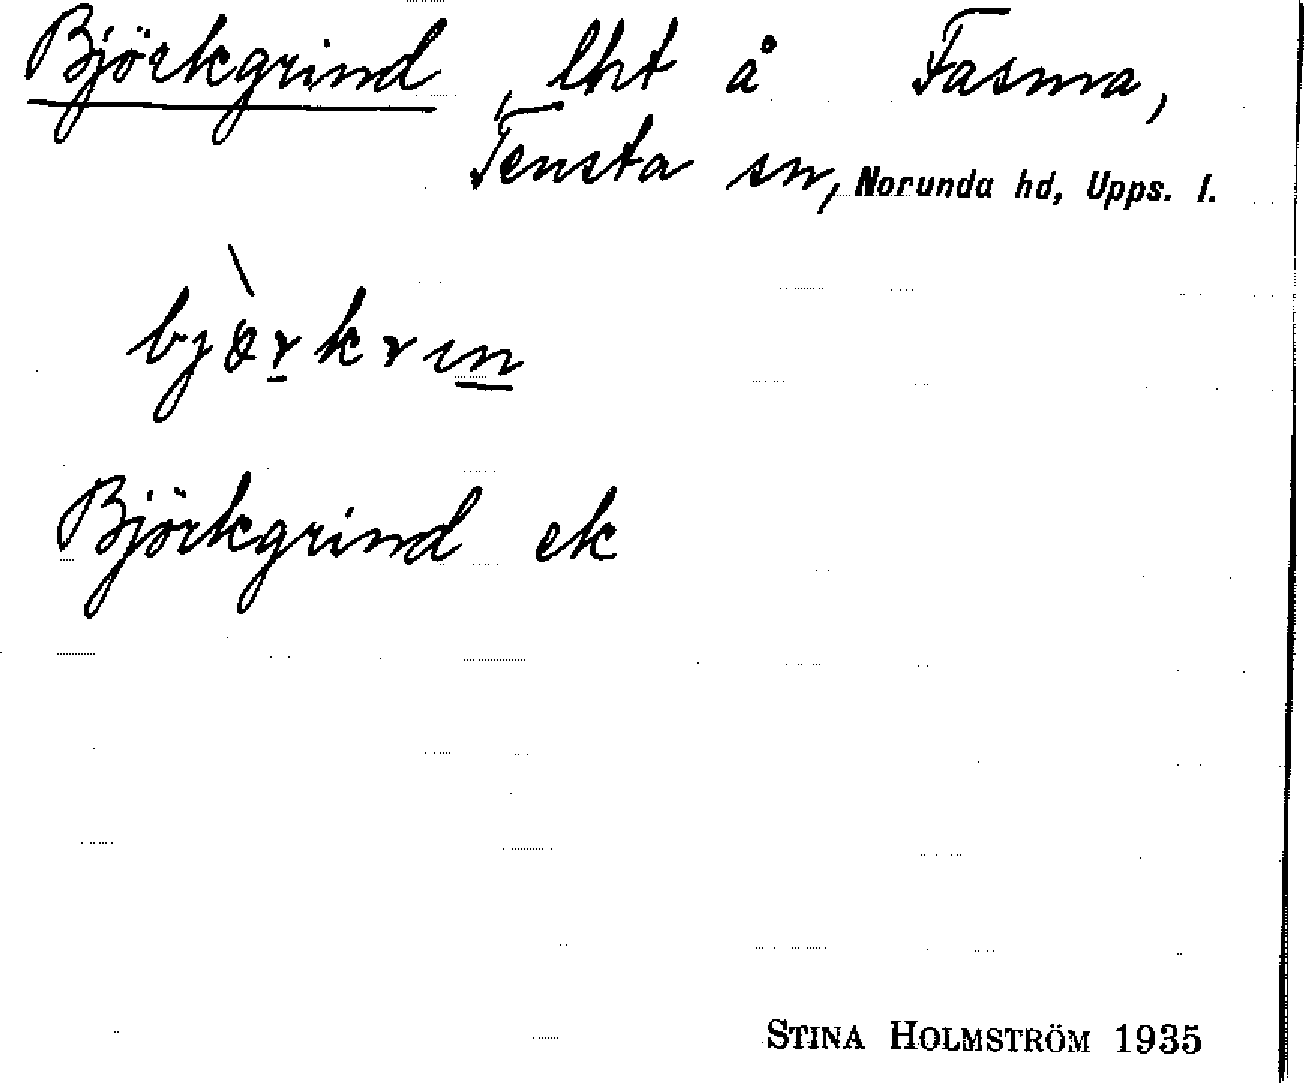 Björkgrind, lht å Fasma,
Tensta sn, Norunda hd, Upps. l.
bjɵ̀rkrın
Björkgrind ek
STINA HOLMSTRÖM 1935